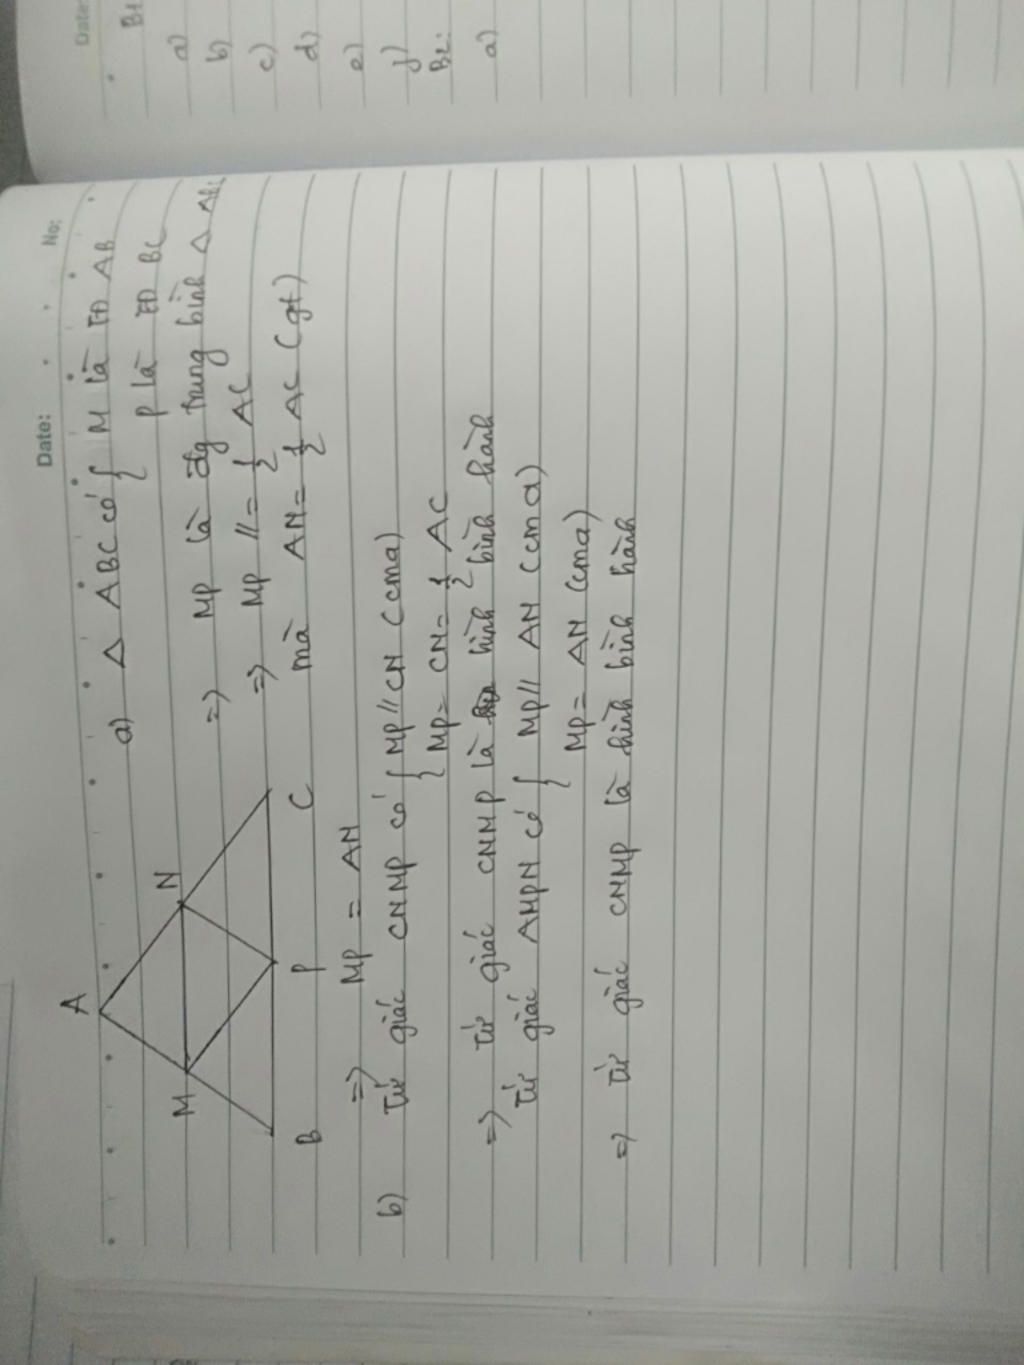 Date:
B1.
a)
b)
c)
d)
e)
f)
B2:
a)
Date: No:
A
M
N
B
P
C
a) △ ABC có { M là TĐ AB
P là TĐ BC
=> MP là đg trung bình △
=> MP //= 1/2 AC
mà AN = 1/2 AC (gt)
=> MP = AN
b) Tứ giác CNMP có { MP // CN (cma)
MP = CN = 1/2 AC
=> tứ giác CNMP là hình bình hành
Tứ giác AMPN có { MP // AN (cma)
MP = AN (cma)
=> Tứ giác CNMP là hình bình hành